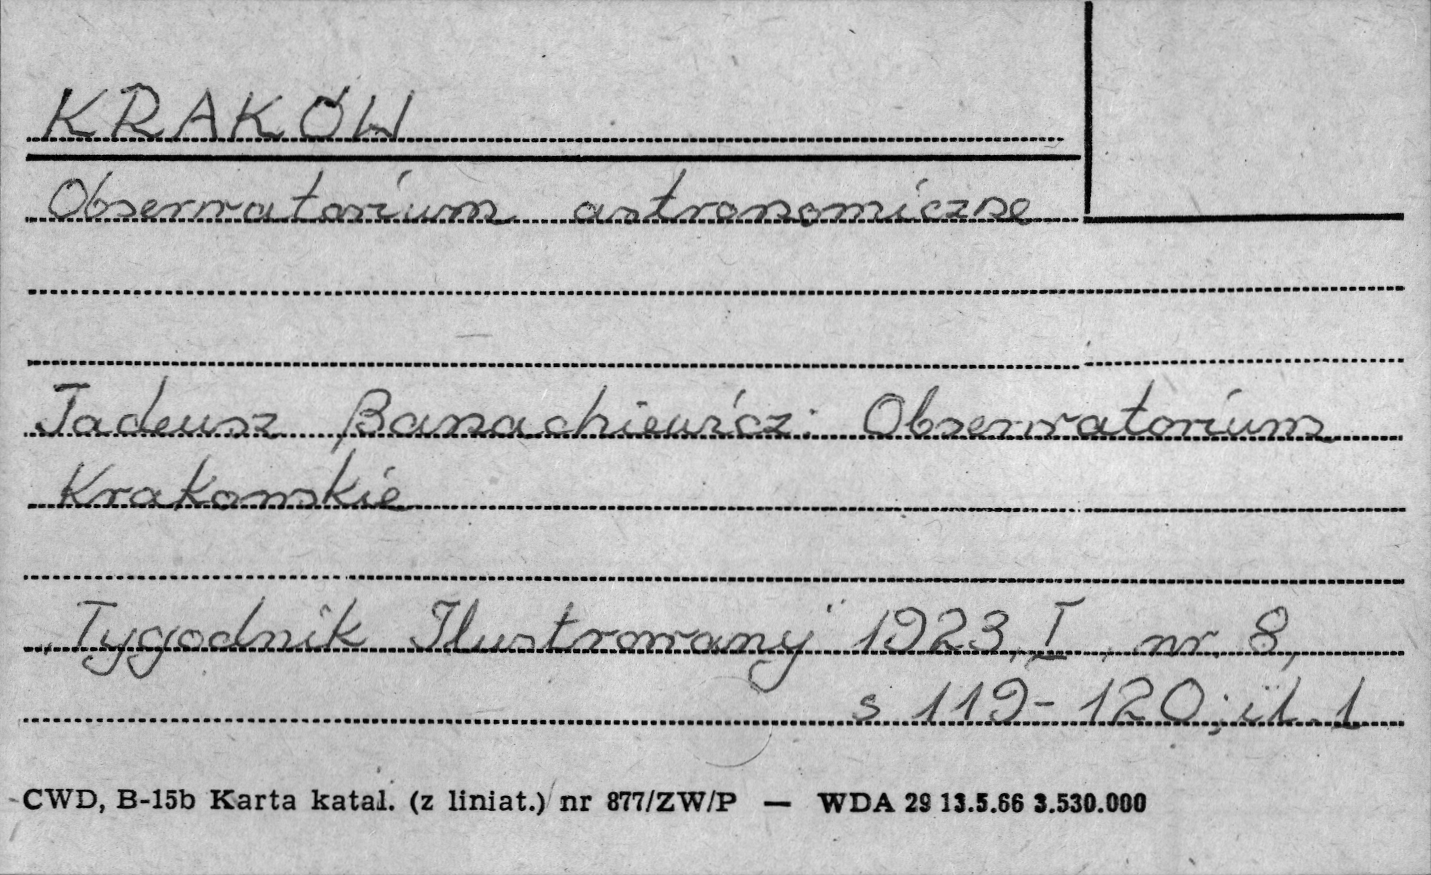 KRAKÓW
Obserwatorium astronomiczne
Tadeusz Banachiewicz: Obserwatorium
Krakowskie
„Tygodnik Ilustrowany" 1923, I, nr. 8,
s 119-120; il. 1
CWD, B-15b Karta katal. (z liniat.) nr 877/ZW/P — WDA 29 13.5.66 3.530.000